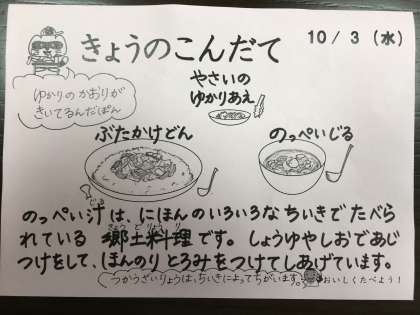 きょうのこんだて
10/3(水)
ゆかりのかおりが
きいてるんだぽん
やさいの
ゆかりあえ
ぶたかけどん
のっぺいじる
のっぺい汁は、にほんのいろいろなちいきでたべら
れている郷土料理です。しょうゆやしおであじ
つけをして、ほんのりとろみをつけてしあげています。
つかうざいりょうは、ちいきによってちがいます。
おいしくたべよう!